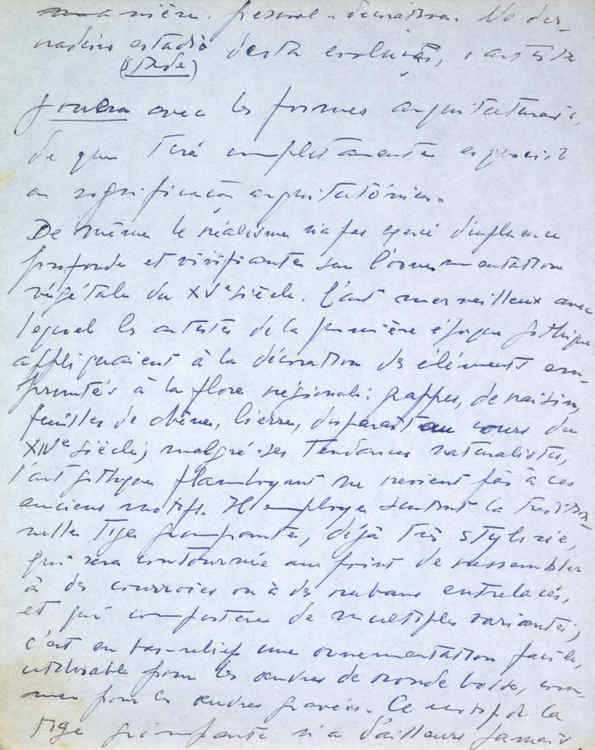 manière. formal - décoration. No der-
nadeiro estadio desta evolução, o artista
(stade)
jouera avec les formes arquitecturais,
de que tira completamente
a significação arquitetónica.
De même le réalisme n'a pas exercé d'influence
profonde et vivifiante sur l'ornementation
végétale du XVe siècle. L'art merveilleux avec
lequel les artistes de la première époque gothique
appliquaient à la décoration des éléments em-
pruntés à la flore régionale: grappes, de raisin,
feuilles de chêne, lierre, disparait au cours du
XIVe siècle; malgré ses tendances naturalistes,
l'art gothique flamboyant ne revient pas à ces
anciens motifs. Il employa surtout la tradition-
nelle tige grimpante, déjà très stylisée,
qui sera contournée au point de ressembler
à des courroies ou à des rubans entrelacés,
et qui comportera de multiples variantes;
c'est en bas-relief une ornementation facile,
utilisable pour les œuvres de ronde bosse, com-
me pour les œuvres gravées. Ce motif de la
tige grimpante n'a d'ailleurs jamais